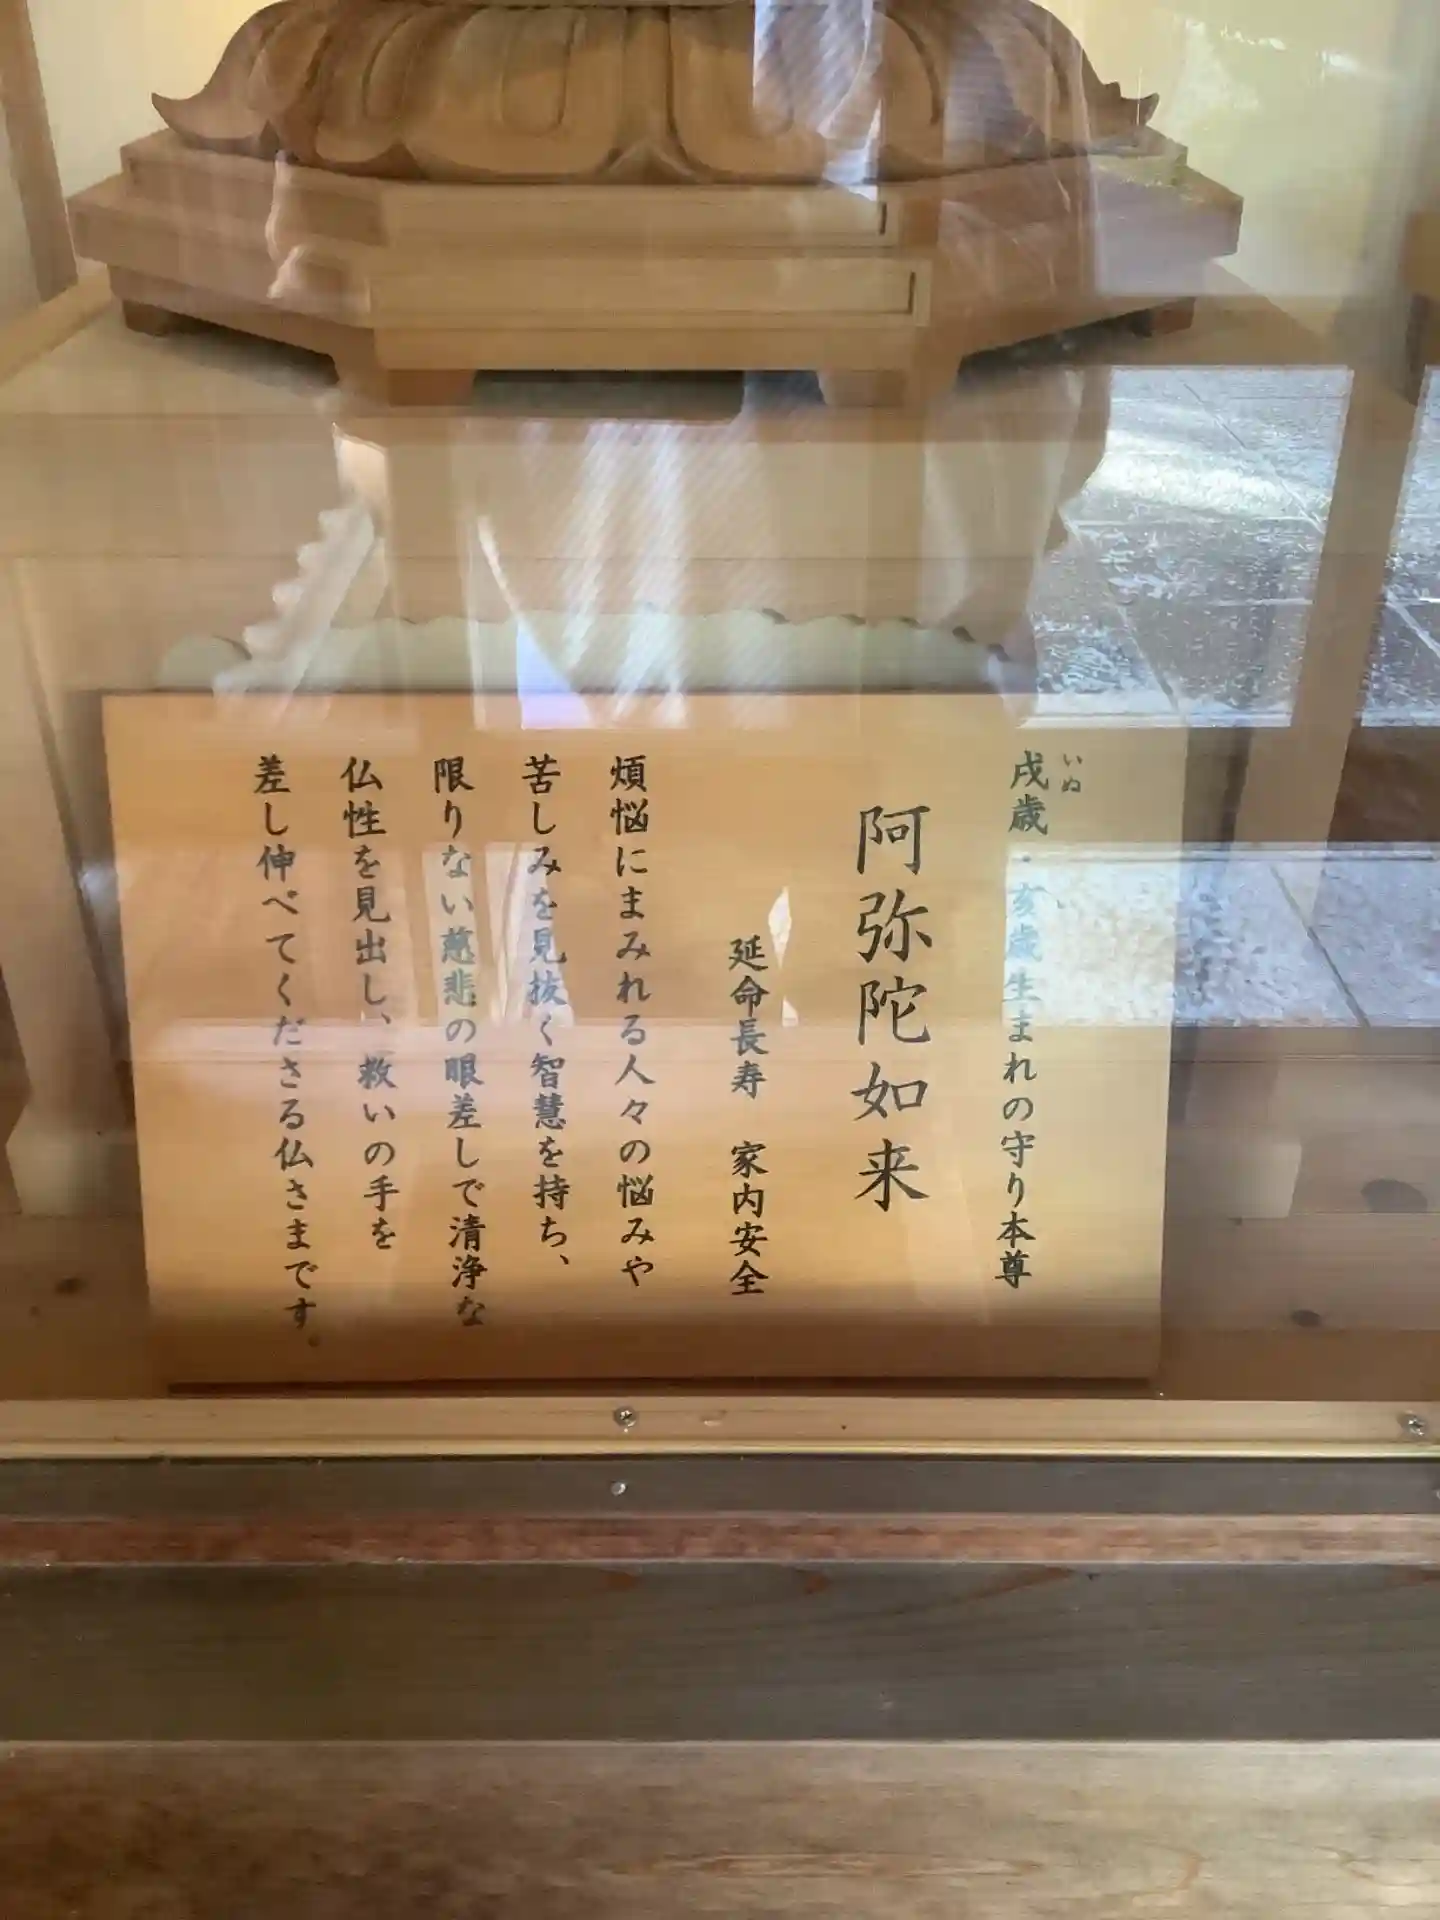 戌歳・亥歳生まれの守り本尊
いぬ
阿弥陀如来
延命長寿　家内安全
煩悩にまみれる人々の悩みや
苦しみを見抜く智慧を持ち、
限りない慈悲の眼差しで清浄な
仏性を見出し、救いの手を
差し伸べてくださる仏さまです。